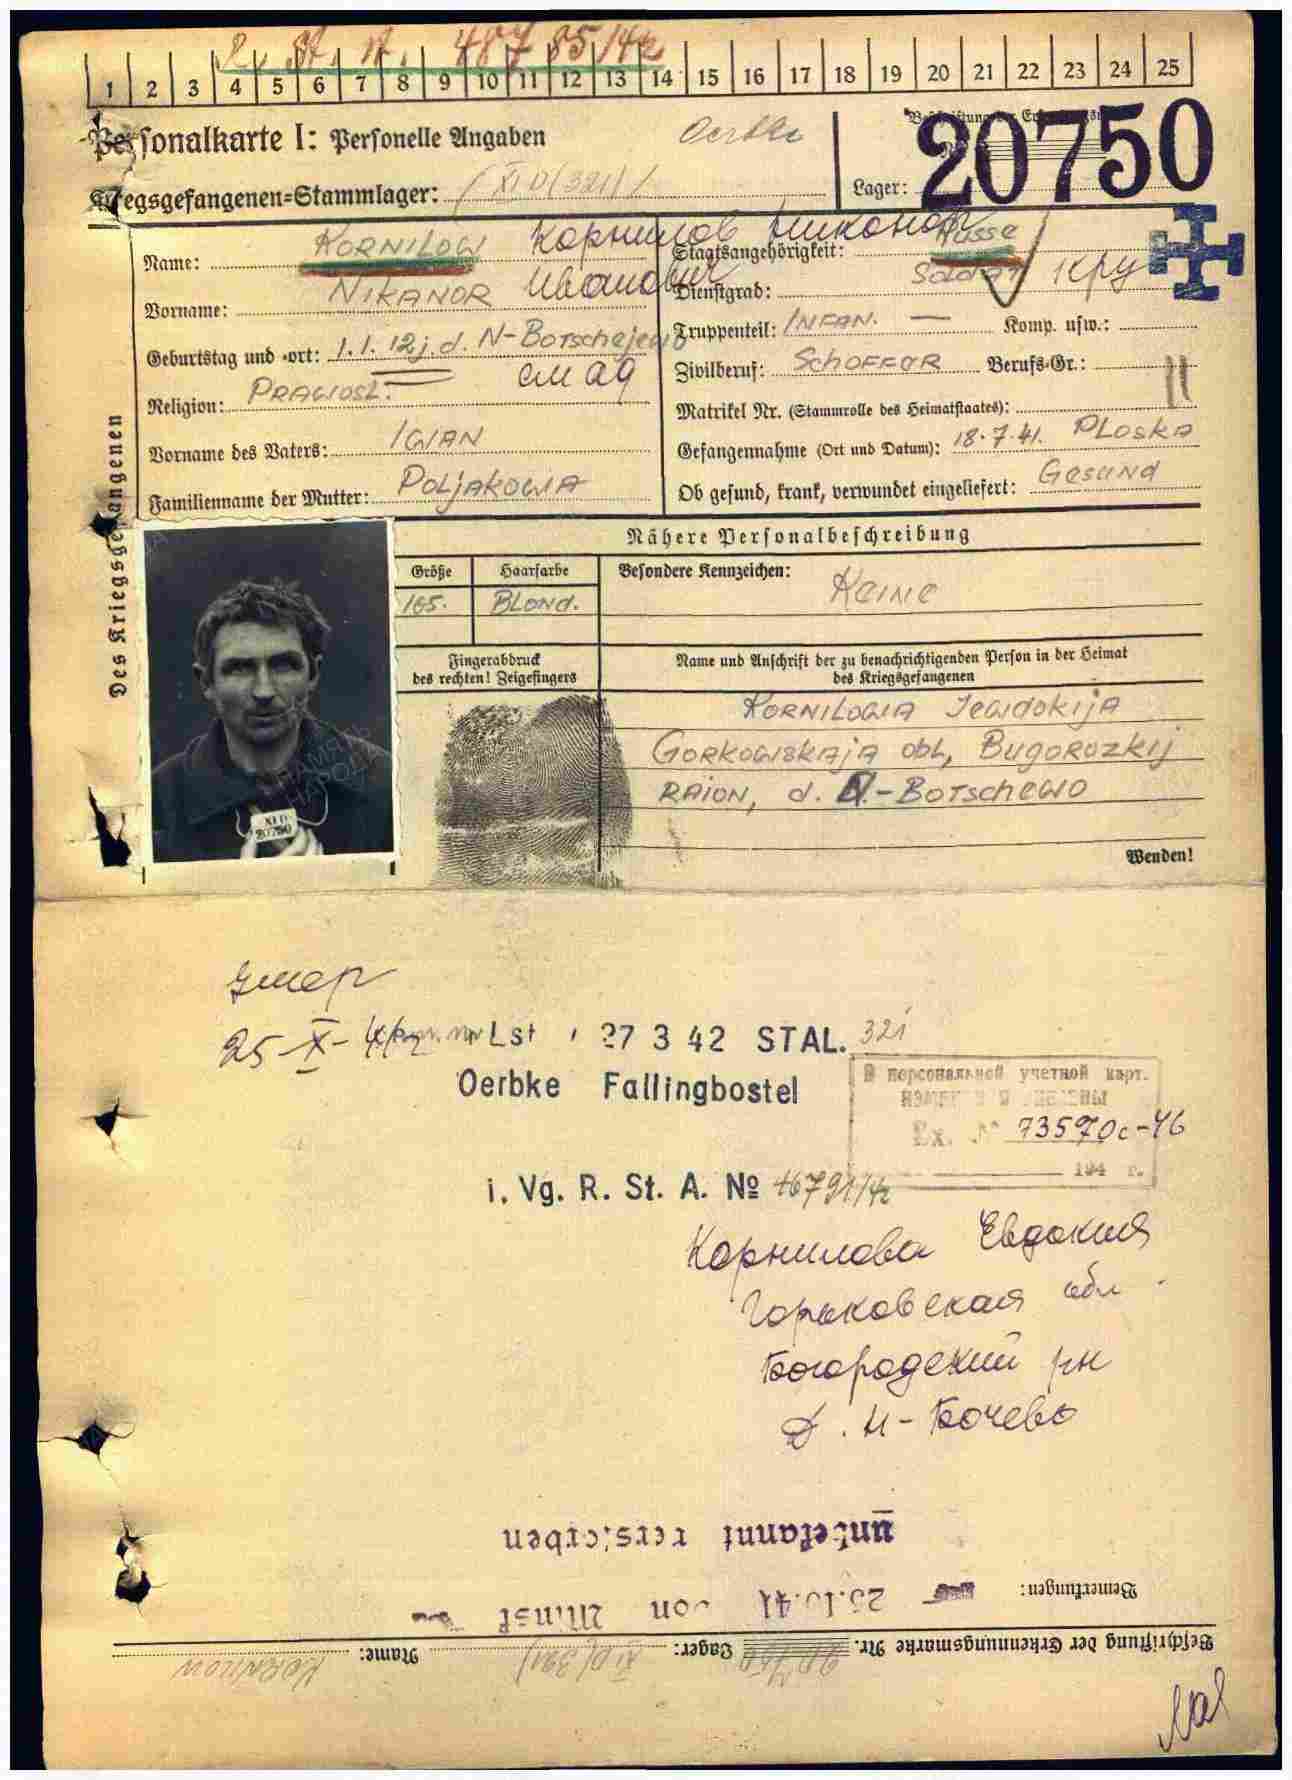 R. St. A. 487 85/42
1 2 3 4 5 6 7 8 9 10 11 12 13 14 15 16 17 18 19 20 21 22 23 24 25
Personalkarte I: Personelle Angaben
Oerbke
20750
Kriegsgefangenen=Stammlager: (XI D (321)) Lager:
Des Kriegsgefangenen
Name: KORNILOW Корнилов Никонор
Staatsangehörigkeit: Russe
Vorname: NIKANOR Иванович
Dienstgrad: SOLDAT кру
Geburtstag und =ort: 1.1.12 j. d. N-Botschejewo
Truppenteil: INFAN. — Komp. usw.:
Zivilberuf: SchOFFER Berufs=Gr.:
Religion: PRAWOSL.
Matrikel Nr. (Stammrolle des Heimatstaates):
Vorname des Vaters: IWAN
Gefangennahme (Ort und Datum): 18.7.41. PLOSKA
Familienname der Mutter: POLJAKOWA
Ob gesund, krank, verwundet eingeliefert: Gesund
Nähere Personalbeschreibung
Größe Haarfarbe Besondere Kennzeichen: Keine
165. BLOND.
XI D
20750
Fingerabdruck
des rechten! Zeigefingers
Name und Anschrift der zu benachrichtigenden Person in der Heimat
des Kriegsgefangenen
KORNILOWA JEWDOKIJA
GORKOWSKAJA obl, BUGOROZKIJ
RAION, d. N.-BOTSCHEWO
Wenden!
умер
25-X-
Lst 27 3 42 STAL. 321
Oerbke Fallingbostel
В персональной учетной карт.
Вх. № 73570с-46
194 г.
i. Vg. R. St. A. № 46791/42
Корнилова Евдокия
Горьковская обл
Богородский рн
Д. Н-Бочево
unbekannt verstorben
Bemerkungen: 25.10.41 von Minsk
Beschriftung der Erkennungsmarke Nr. 20750 Lager: XI D (321) Name: KORNILOW